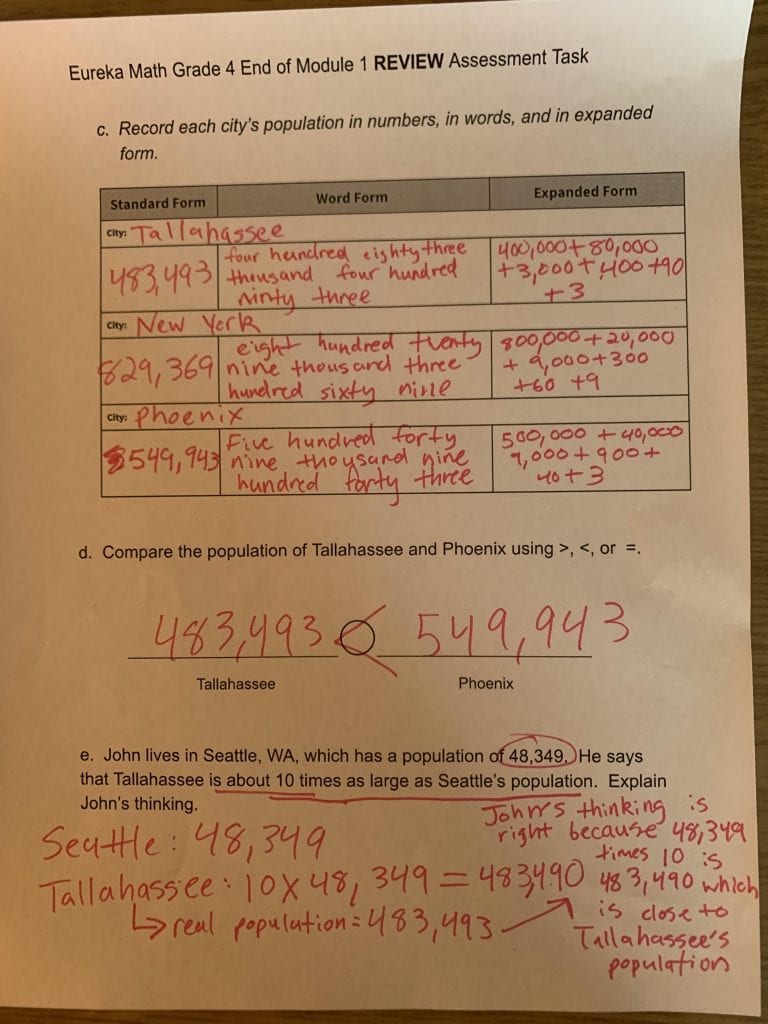 Eureka Math Grade 4 End of Module 1 REVIEW Assessment Task
c. Record each city's population in numbers, in words, and in expanded
form.
Standard Form Word Form Expanded Form
City: Tallahassee
483,493
four hundred eighty three
thousand four hundred
ninty three
400,000 + 80,000
+ 3,000 + 400 + 90
+ 3
City: New York
829,369
eight hundred twenty
nine thousand three
hundred sixty nine
800,000 + 20,000
+ 9,000 + 300
+ 60 + 9
City: Phoenix
549,943
Five hundred forty
nine thousand nine
hundred forty three
500,000 + 40,000
9,000 + 900 +
40 + 3
d. Compare the population of Tallahassee and Phoenix using >, <, or =.
483,493 < 549,943
Tallahassee Phoenix
e. John lives in Seattle, WA, which has a population of 48,349. He says
that Tallahassee is about 10 times as large as Seattle's population. Explain
John's thinking.
Seattle: 48,349
Tallahassee: 10 X 48,349 = 483,490
↳ real population = 483,493
John's thinking is
right because 48,349
times 10 is
483,490 which
is close to
Tallahassee's
population